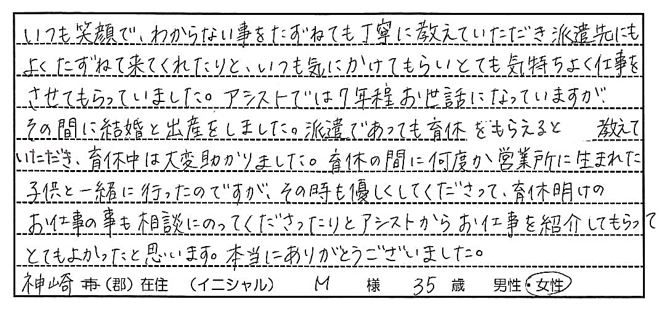 いつも笑顔で、わからない事をたずねても丁寧に教えていただき派遣先にも
よくたずねて来てくれたりと、いつも気にかけてもらいとても気持ちよく仕事を
させてもらっていました。アシストでは7年程お世話になっていますが、
その間に結婚と出産をしました。派遣であっても育休をもらえると 教えて
いただき、育休中は大変助かりました。育休の間に何度か営業所に生まれた
子供と一緒に行ったのですが、その時も優しくしてくださって、育休明けの
お仕事の事も相談にのってくださったりとアシストからお仕事を紹介してもらって
とてもよかったと思います。本当にありがとうございました。
神崎 市（郡）在住 （イニシャル） M 様 35 歳 男性・女性